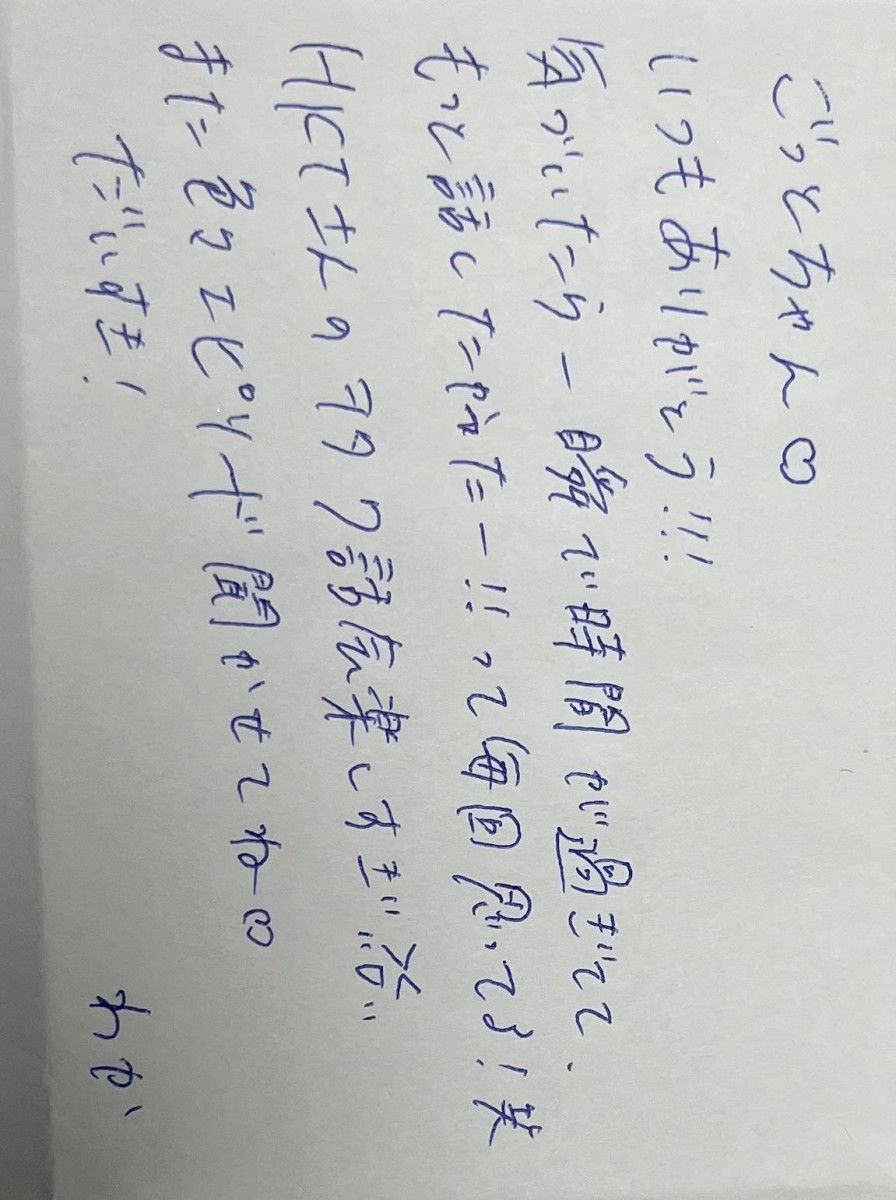 ごっとちゃん♡
いつもありがとう!!!
気づいたら一瞬で時間が過ぎてて、
もっと話したかったー!!って毎回思ってる!笑
HKTさんのヲタク話伝楽しすぎ"渋"
またるエピソード聞かせてね♡
だいすき!
わか